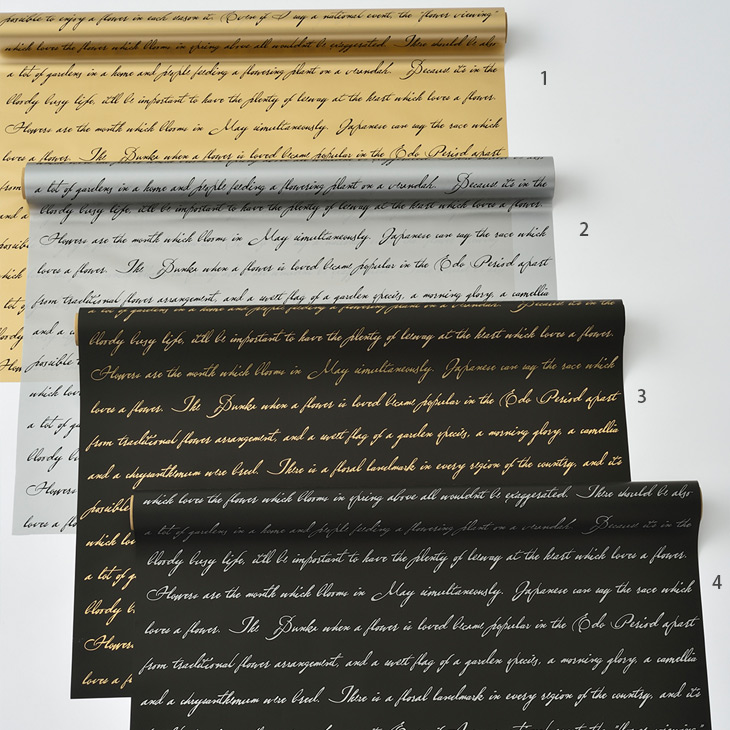 possible to enjoy a flower in each season it. Even if I say a national event, the "flower viewing"
which loves the flower which blooms in spring above all wouldnt be exaggerated. There should be also
a lot of gardens in a home and people feeding a flowering plant on a verandah. Because its in the
bloody busy life, itll be important to have the plenty of leeway at the heart which loves a flower.
Flowers are the month which blooms in May simultaneously. Japanese can say the race which
loves a flower. The Bunka when a flower is loved became popular in the Edo Period apart
from
and a
possib
which
a lot
bloody
Flowe
1
a lot of gardens in a home and people feeding a flowering plant on a verandah. Because its in the
bloody busy life, itll be important to have the plenty of leeway at the heart which loves a flower.
Flowers are the month which blooms in May simultaneously. Japanese can say the race which
loves a flower. The Bunka when a flower is loved became popular in the Edo Period apart
from traditional flower arrangement, and a swell flag of a garden species, a morning glory, a camellia
and a c
possible
which lo
a lot of g
bloody b
Flowers
loves a f
2
a lot of gardens in a home and people feeding a flowering plant on a verandah. Because its in the
bloody busy life, itll be important to have the plenty of leeway at the heart which loves a flower.
Flowers are the month which blooms in May simultaneously. Japanese can say the race which
loves a flower. The Bunka when a flower is loved became popular in the Edo Period apart
from traditional flower arrangement, and a swell flag of a garden species, a morning glory, a camellia
and a chrysanthemum were bred. There is a floral landmark in every region of the country, and its
possible
which lo
a lot of g
bloody b
Flowers
loves a f
3
which loves the flower which blooms in spring above all wouldnt be exaggerated. There should be also
a lot of gardens in a home and people feeding a flowering plant on a verandah. Because its in the
bloody busy life, itll be important to have the plenty of leeway at the heart which loves a flower.
Flowers are the month which blooms in May simultaneously. Japanese can say the race which
loves a flower. The Bunka when a flower is loved became popular in the Edo Period apart
from traditional flower arrangement, and a swell flag of a garden species, a morning glory, a camellia
and a chrysanthemum were bred. There is a floral landmark in every region of the country, and its
4